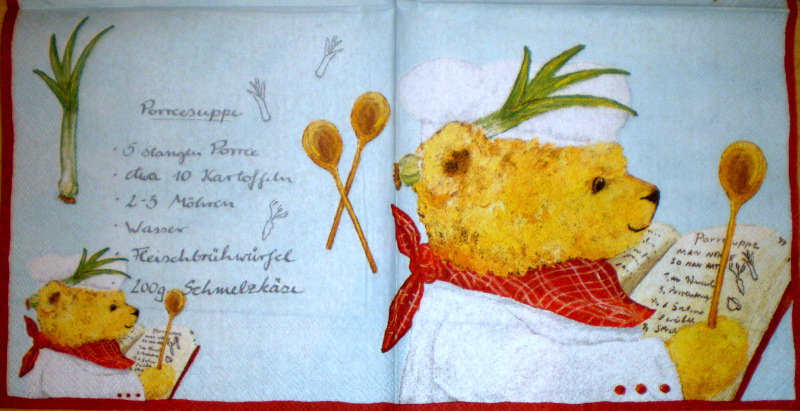 Porréesuppe
· 5 stangen Porrée
· etwa 10 Kartoffeln
· 2-3 Möhren
· Wasser
· Fleischbrühwürfel
· 200g Schmelzkäse
Porrésuppe
MAN
SO MAN HAT